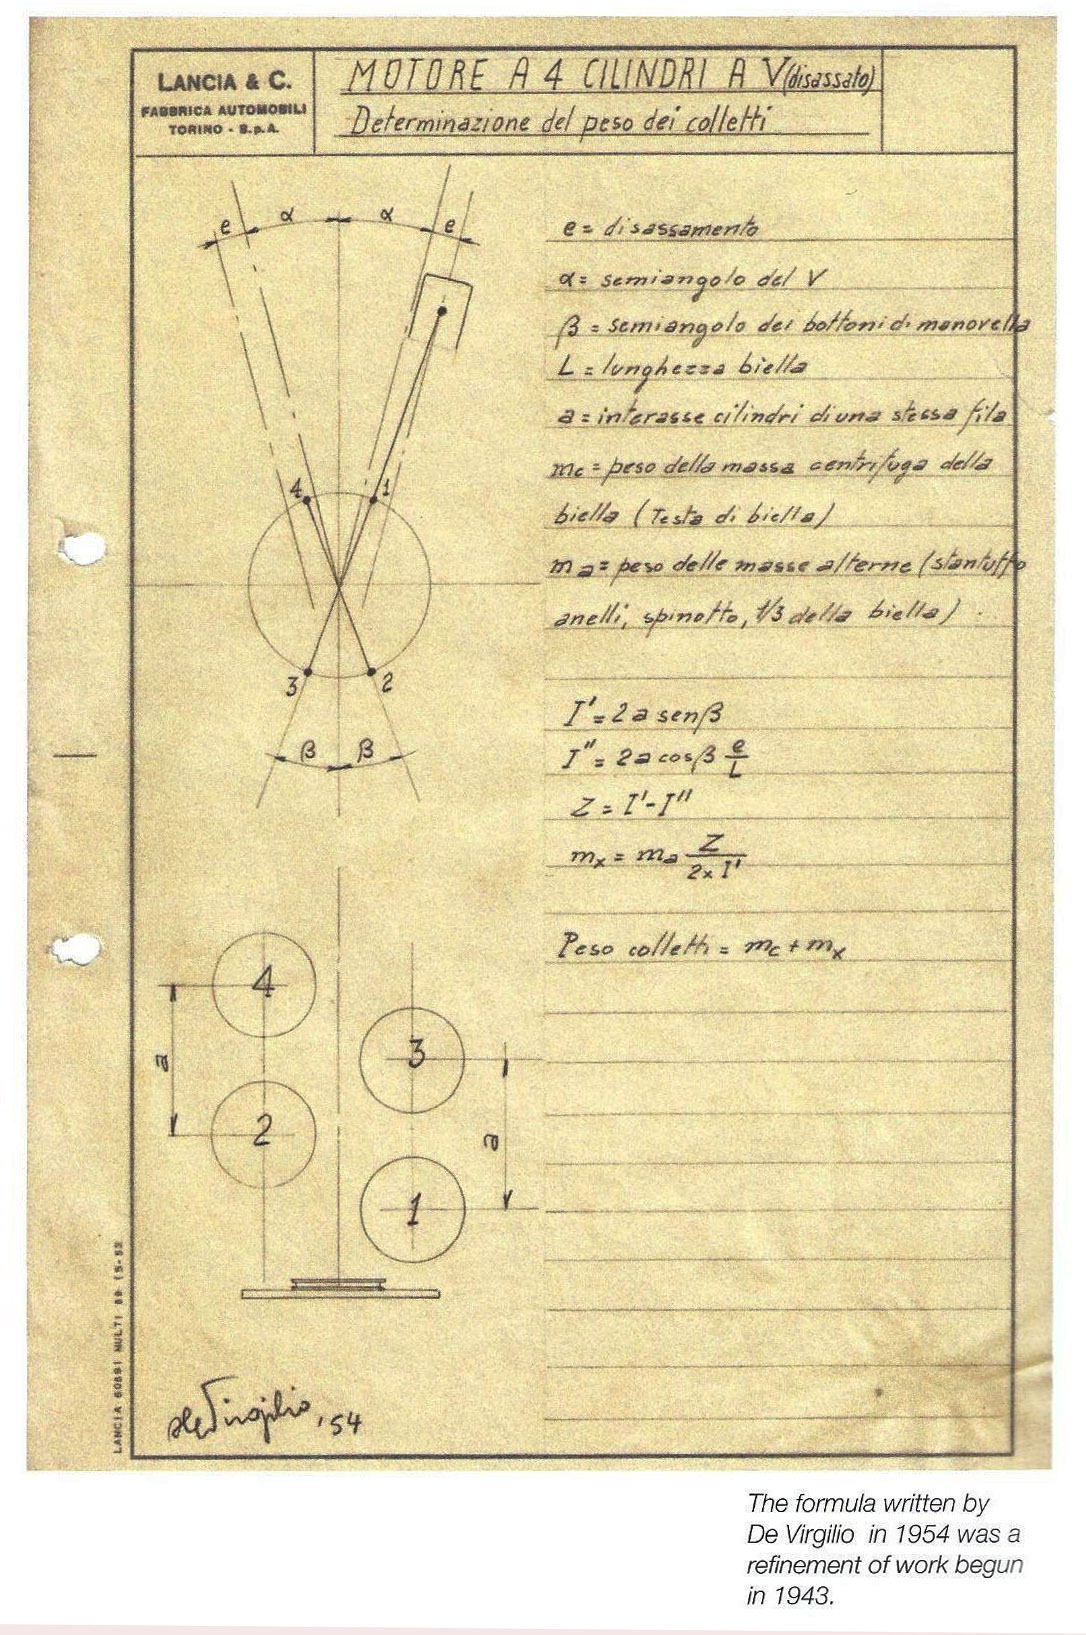 LANCIA & C.
FABBRICA AUTOMOBILI
TORINO - S.p.A.
MOTORE A 4 CILINDRI A V (disassato)
Determinazione del peso dei colletti
e α α e
e = disassamento
α = semiangolo del V
β = semiangolo dei bottoni di manovella
L = lunghezza biella
a = interasse cilindri di una stessa fila
mc = peso della massa centrifuga della
biella (Testa di biella)
ma = peso delle masse alterne (stantuffo
anelli, spinotto, 1/3 della biella)
4 1
3 2
β β
I' = 2a senβ
I" = 2a cosβ e/L
Z = I' - I"
mx = ma Z/2x I'
Peso colletti = mc + mx
4
3
a
2
a
1
De Virgilio, 54
LANCIA 60691 MULTI 89 15-53
The formula written by
De Virgilio in 1954 was a
refinement of work begun
in 1943.